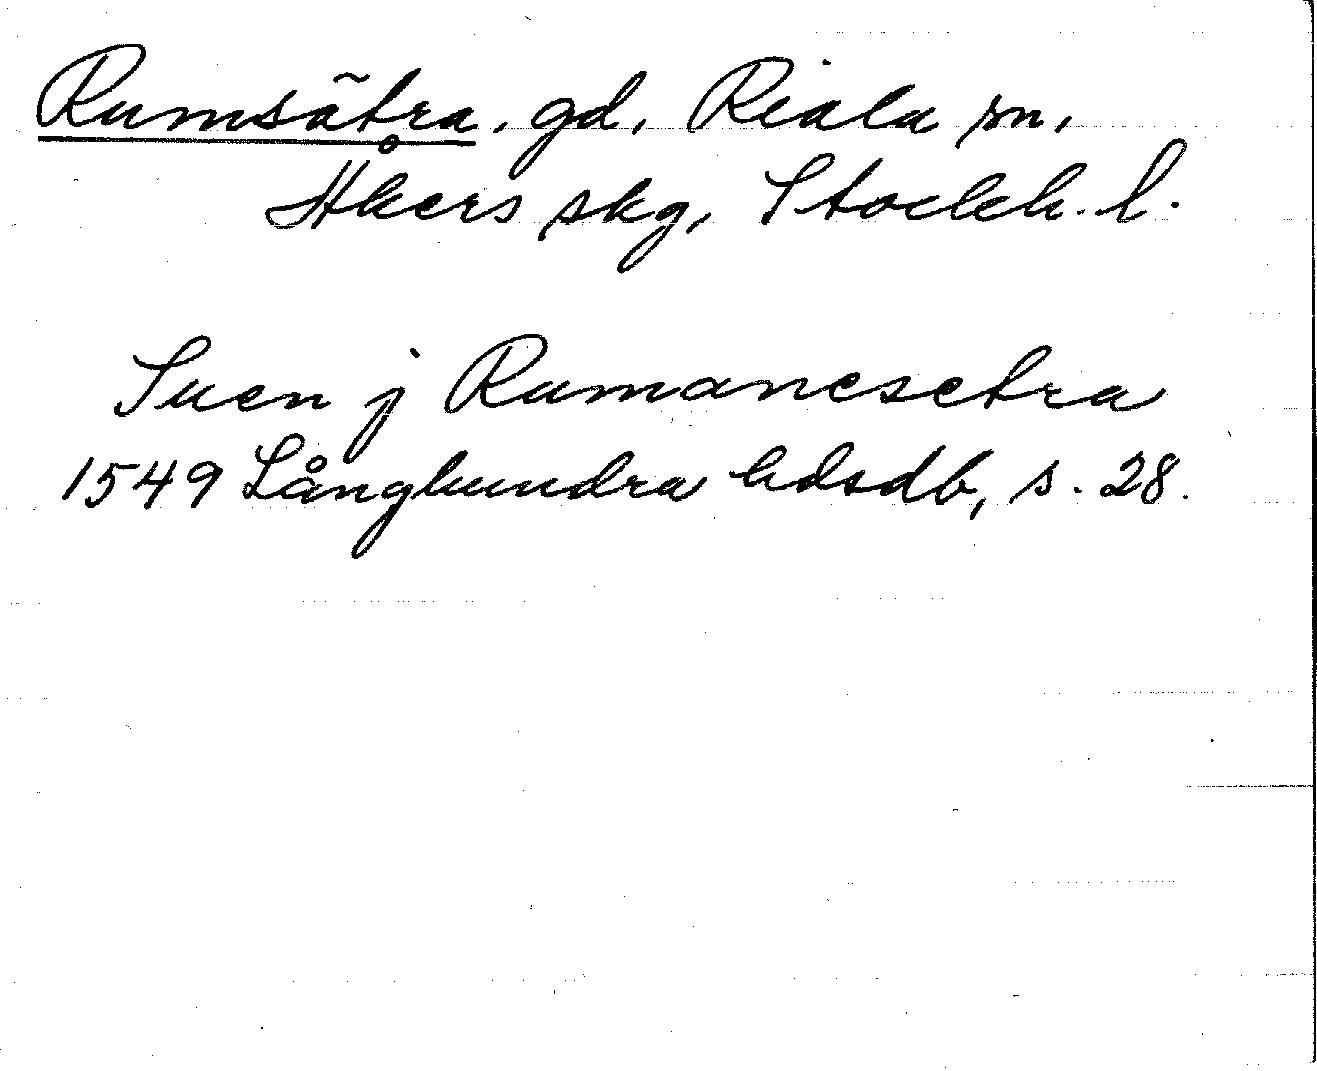 Rumsätra, gd, Riala sn,
Åkers skg, Stockh. l.
Suen j Rumanesetra
1549 Långhundra hdsdb, s. 28.